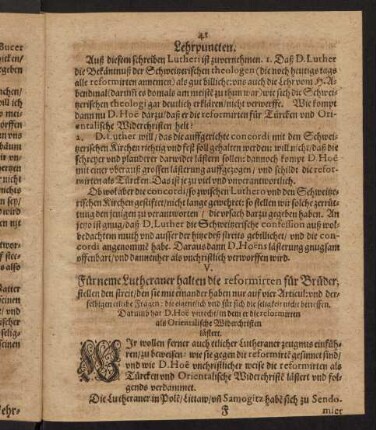 41
Lehrpuncten.
Auß diesen schreiben Lutheri ist zuvernehmen. 1. Daß D. Luther
die Bekäntnuß der Schweitzerischen theologen (die noch heutigs tags
alle reformirten annemen) als gut billiche: uns auch die Lehr vom H. A-
bendmal (darüñ es domals am meisten zu thun war) wie sich die Schwei-
tzerischen theologi gar deutlich erklären / nicht verwerffe. Wie kompt
dann nu D. Hoë darzu / daß er die reformirten für Türcken und Ori-
entalische Widerchristen helt:
2. D. Luther will, das die auffgerichte concordi mit den Schwei-
tzerischen Kirchen richtig und fest soll gehalten werden: will nicht / daß die
schreyer und planderer darwider lästern sollen: dannoch kompt D. Hoë
mit einer überauß grossen lästerung auffgezogen / und schildt die refor-
mirten als Türcken. Das ist je zu viel und unverantwortlich.
Ob wol aber die concordi, so zwischen Luthero und den Schweitze-
rischen Kirchen gestifftet / nicht lange gewehret: so stellen wir solche zerrüt-
tung den jenigen zu verantworten / die ursach darzu gegeben haben. An
jetzo ist gnug / daß D. Luther die Schweitzerische confession auß wol-
bedachtem muth und ausser der hitze deß streits gebillichet / und die con-
cordi angenommē habe. Daraus dann D. Hoëns lästerung gnugsam
offenbart / und dannenher als unchristlich verworffen wird.
V.
Fürneme Lutheraner halten die reformirten für Brüder,
stellen den streit / den sie mit einander haben nur auff vier Articul: und der-
als Orientalische Widerchristen
lästert.
WIr wollen ferner auch etlicher Lutheraner zeugnus einfüh-
ren / zu beweisen / wie sie gegen die reformirtē gesinnet sind /
und wie D. Hoë unchristlicher weise die reformirten als
Türcken und Orientalische Widerchristē lästert und fol-
gends verdammet.
Die Lutheraner in Polē / Littaw / uñ Samogitz habē sich zu Sendo-
F
mier
Lehr-